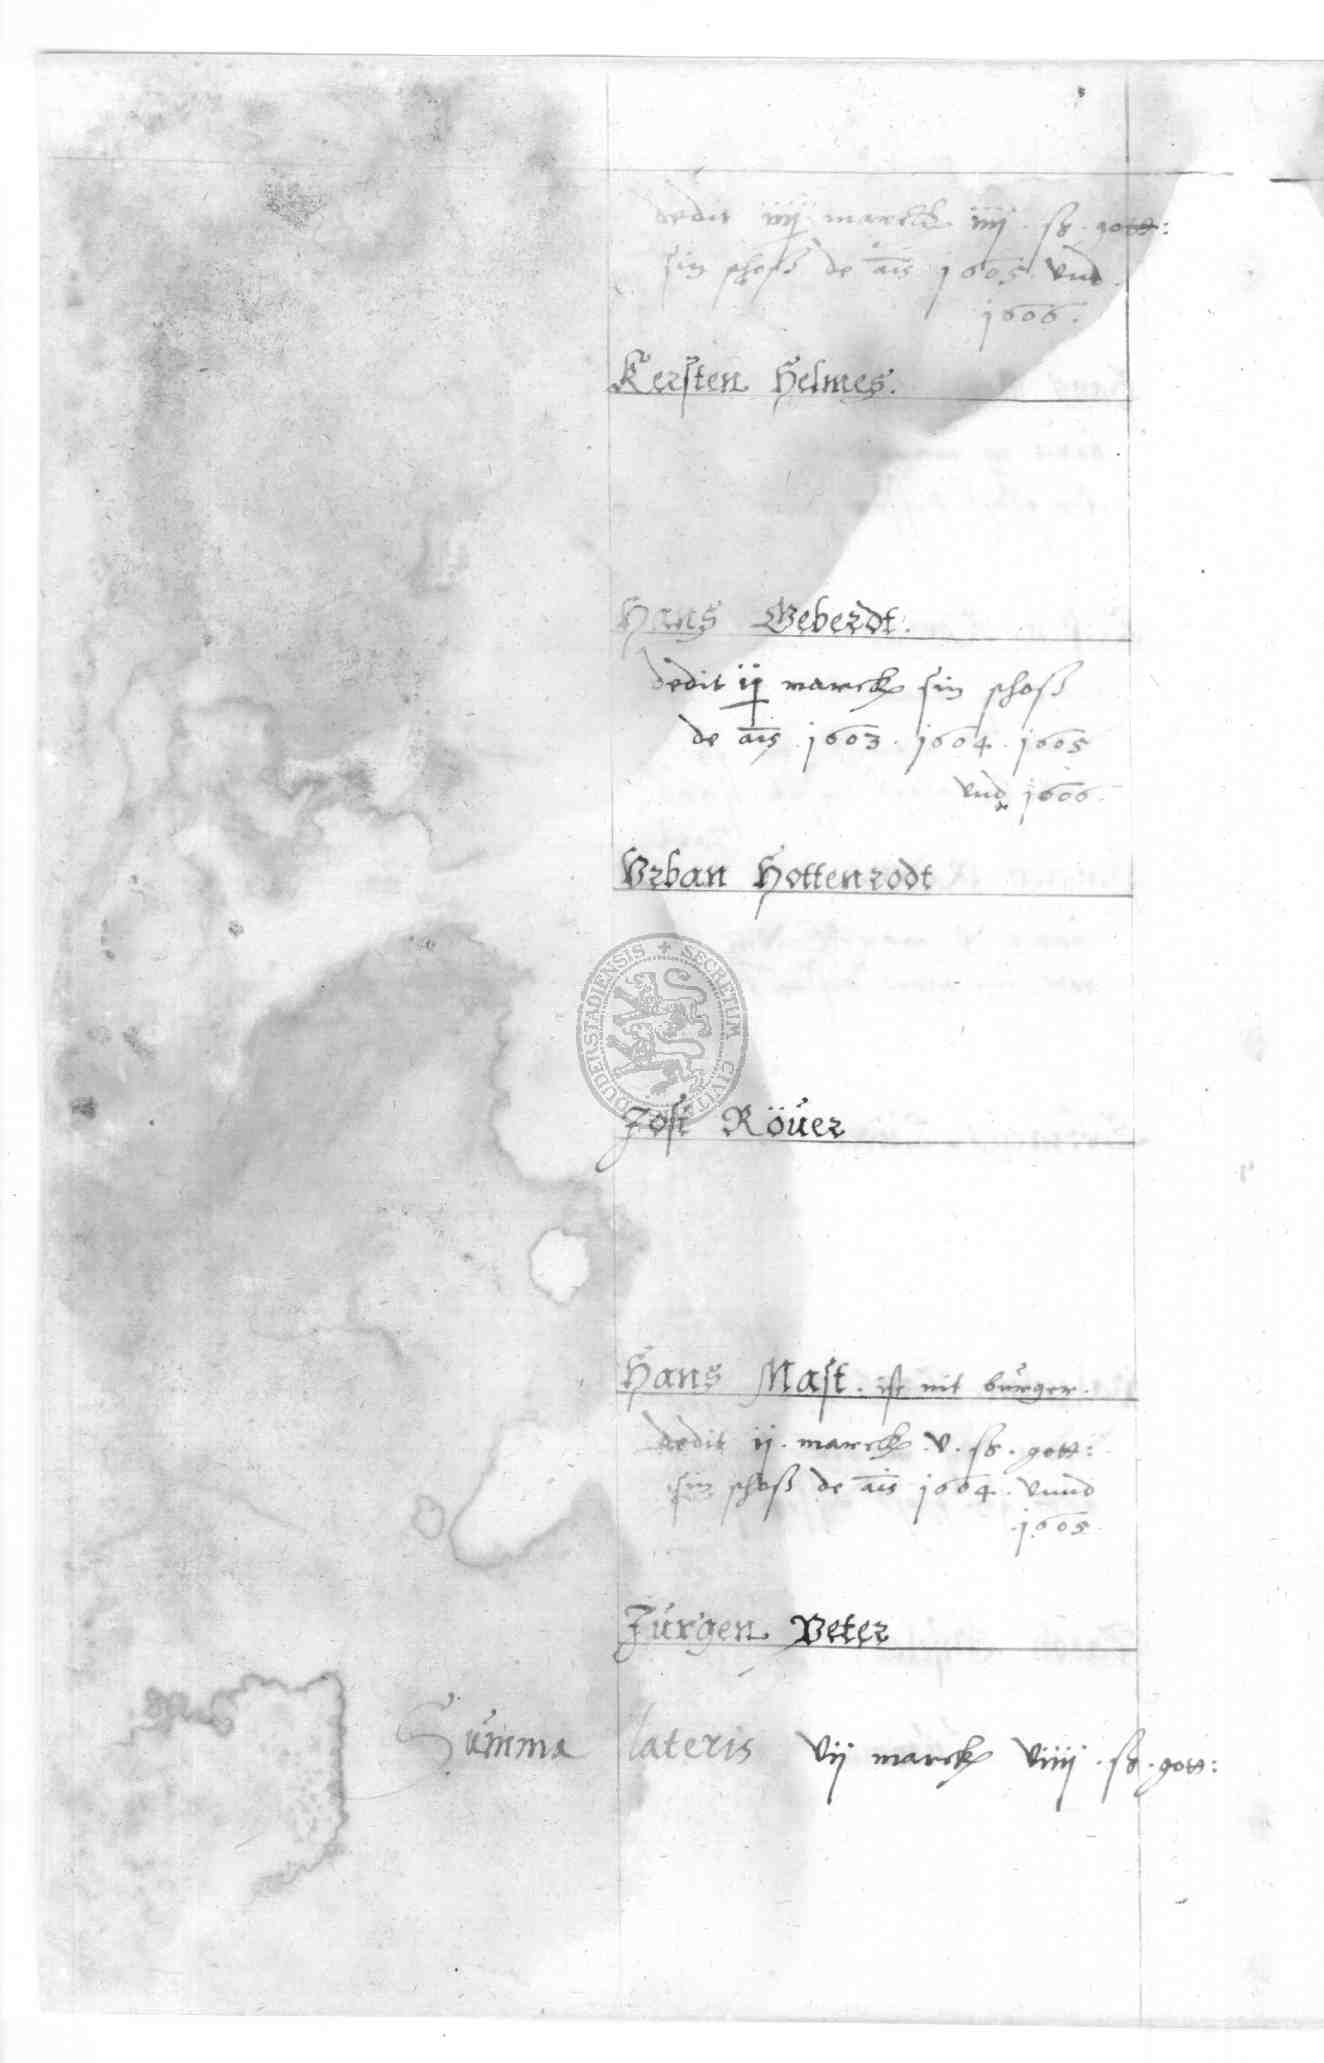 dedit iiij marck iiij . ß . gott:
sin schoß de ais 1605 . vnd
1606 .
Kersten Helmes .
Hans Geberdt .
dedit ij marck sin schoß
de ais . 1603 . 1604 . 1605
vnd 1606 .
Vrban Hottenrodt
SECRETUM CIVIT DUDERSTADIENSIS
Jost Röuer
Hans Mast . ist nit burger .
dedit ij . marck . v . ß . gott:
sin schoß de ais 1604 . vnnd
1605
Jurgen Veter
Summa lateris vij marck viiij . ß . gott: